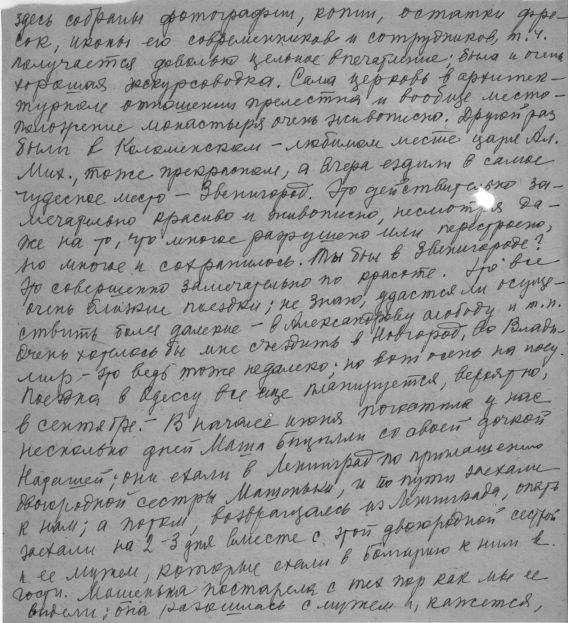 здесь собраны фотографии, копии, остатки фре-
сок, иконы его современников и сотрудников, т.ч.
получается довольно цельное впечатление; была и очень
хорошая экскурсоводка. Сама церковь в архитек-
турном отношении прелестна и вообще место-
положение монастыря очень живописно. Другой раз
были в Коломенском – любимом месте царя Ал.
Мих., тоже прекрасном, а вчера ездили в самое
чудесное место – Звенигород. Это действительно за-
мечательно красиво и живописно, несмотря да-
же на то, что многое разрушено или перестроено,
но многое и сохранилось. Ты был в Звенигороде?
Это совершенно замечательно по красоте. Это все
очень близкие поездки; не знаю, удастся ли осуще-
ствить более далекие – в Александрову слободу и т.п.
Очень хотелось бы мне съездить в Новгород, во Влади-
мир – это ведь тоже недалеко; но вот осень на носу.
Поездка в Одессу все еще планируется, вероятно,
в сентябре. – В начале июня у нас
несколько дней Маша со своей дочкой
Наташей; они ехали в Ленинград по приглашению
двоюродной сестры Машеньки, и по пути заехали
к нам; а потом, возвращаясь из Ленинграда, опять
заехали на 2-3 дня вместе с этой двоюродной сестрой
и ее мужем, которые ехали в Болгарию к ним в
гости. Машенька постарела с тех пор как мы ее
видели; она разошлась с мужем и, кажется,